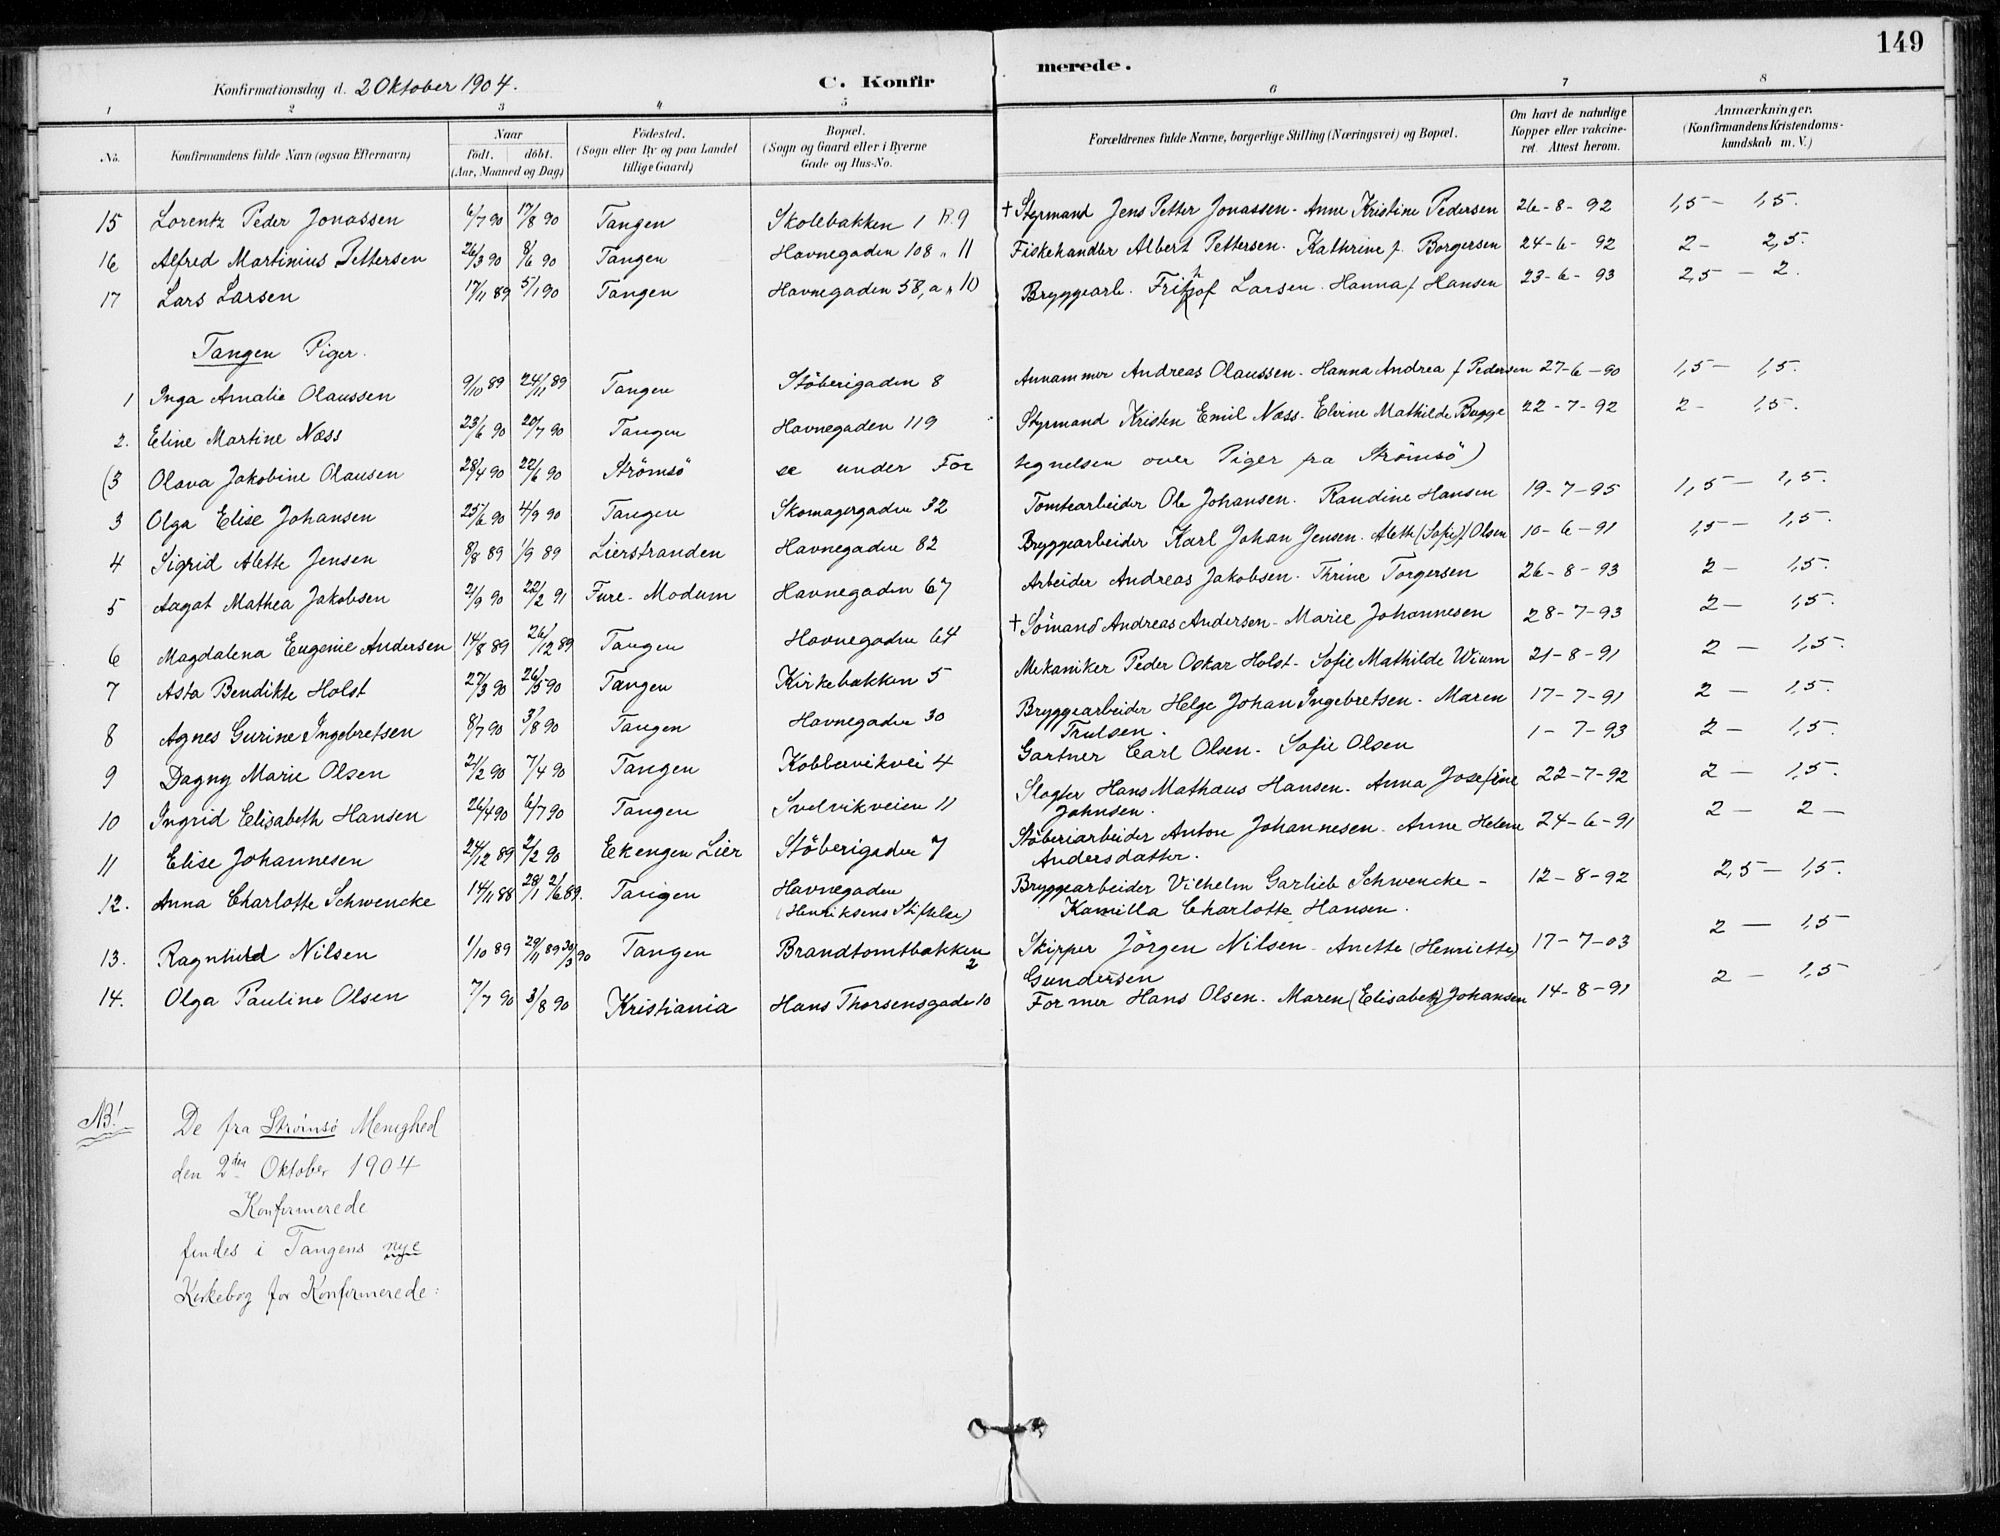 149
Konfirmationsdag d. 2 Oktober 1904. C. Konfirmerede.
1 2 3 4 5 6 7 8
No. Konfirmandens fulde Navn (ogsaa Efternavn) Naar født. døbt. (Aar, Maaned og Dag) Födested. (Sogn eller By og paa Landet tillige Gaard) Bopæl. (Sogn og Gaard eller i Byerne Gade og Hus-No. Forældrenes fulde Navne, borgerlige Stilling (Næringsvei) og Bopæl. Om havt de naturlige Kopper eller vakcineret. Attest herom. Anmærkninger. (Konfirmandens Kristendomskundskab m. V.)
15 Lorentz Peder Jonassen 6/7 90 17/8 90 Tangen Skolebakken 1 R. 9 + Styrmand Jens Petter Jonassen - Anne Kristine Pedersen 26-8-92 1,5 - 1,5.
16 Alfred Martinius Pettersen 26/3 90 8/6 90 Tangen Havnegaden 108 " 11 Fiskehandler Albert Pettersen. Kathrine f. Borgersen 24-6-92 2 - 2,5.
17 Lars Larsen 17/11 89 5/1 90 Tangen Havnegaden 58, a " 10 Bryggearb. Frithjof Larsen. Hanna f. Hansen 23-6-93 2,5 - 2.
Tangen Piger.
1 Inga Amalie Olaussen 9/10 89 24/11 89 Tangen Stöberigaden 8 Annammer Andreas Olaussen - Hanna Andrea f Pedersen 27-6-90 1,5 - 1,5.
2. Eline Martine Næss 23/6 90 20/7 90 Tangen Havnegaden 119 Styrmand Kristen Emil Næss - Elvine Mathilde Bugge 22-7-92 2 - 1,5.
(3 Olava Jakobine Olausen 28/4 90 22/6 90 Strömsö se under For tegnelsen over Piger fra Strömsö)
3 Olga Elise Johansen 25/6 90 4/9 90 Tangen Skomagergaden 32 Tomtearbeider Ole Johansen. Randine Hansen 19-7-95 1,5 - 1,5.
4 Sigrid Alette Jensen 8/8 89 1/9 89 Lierstranden Havnegaden 82 Bryggearbeider Karl Johan Jensen. Alette (Sofie) f Olsen 10-6-91 1,5 - 1,5.
5 Aagot Mathea Jakobsen 21/9 90 22/2 91 Fure - Modum Havnegaden 67 Arbeider Andreas Jakobsen. Thrine Torgersen 26-8-93 2 - 1,5.
6 Magdalena Eugenie Andersen 14/8 89 26/12 89 Tangen Havnegaden 64 + Sömand Andreas Andersen - Marie Johannesen 28-7-93 2 - 1,5.
7 Asta Bendikte Holst 27/3 90 26/5 90 Tangen Kirkebakken 5 Mekaniker Peder Oskar Holst - Sofie Mathilde Wium 21-8-91 2 - 1,5.
8 Agnes Gurine Ingebretsen 8/7 90 3/8 90 Tangen Havnegaden 30 Bryggearbeider Helge Johan Ingebretsen - Maren 17-7-91 2 - 1,5.
Trulsen.
9 Dagny Marie Olsen 21/2 90 7/4 90 Tangen Kobbervikvei 4 Gartner Carl Olsen - Sofie Olsen 1-7-93 2 - 1,5.
10 Ingrid Elisabeth Hansen 26/4 90 6/7 90 Tangen Svelvikveien 11 Slagter Hans Mathæus Hansen. Anna Josefine 22-7-92 2 - 1,5.
Johnsen.
11 Elise Johannesen 24/12 89 2/2 90 Ekengen Lier Stöberigaden 7 Stöberiarbeider Anton Johannesen. Anne Helene 24-6-91 2 - 2 -
Andersdatter.
12. Anna Charlotte Schwencke 14/11 88 28/1 2/6 89. Tangen Havnegaden Bryggearbeider Vilhelm Garlieb Schwencke - 12-8-92 2,5 - 1,5.
(Henriksens Stiftelse) Kamilla Charlotte Hansen.
13. Ragnhild Nilsen 1/10 89 29/11 89 30/3 90 Tangen Brandtomtbakken 2 Skipper Jörgen Nilsen - Anette (Henriette) 17-7-03 2 - 1,5
Gundersen
14. Olga Pauline Olsen 7/7 90 3/8 90 Kristiania Hans Thorsensgade 10 Former Hans Olsen. Maren (Elisabeth) Johansen 14-8-91 2 - 1,5
NB! De fra Strömsö Menighed
den 2den Oktober 1904
Konfirmerede
findes i Tangens nye
Kirkebog for Konfirmerede: